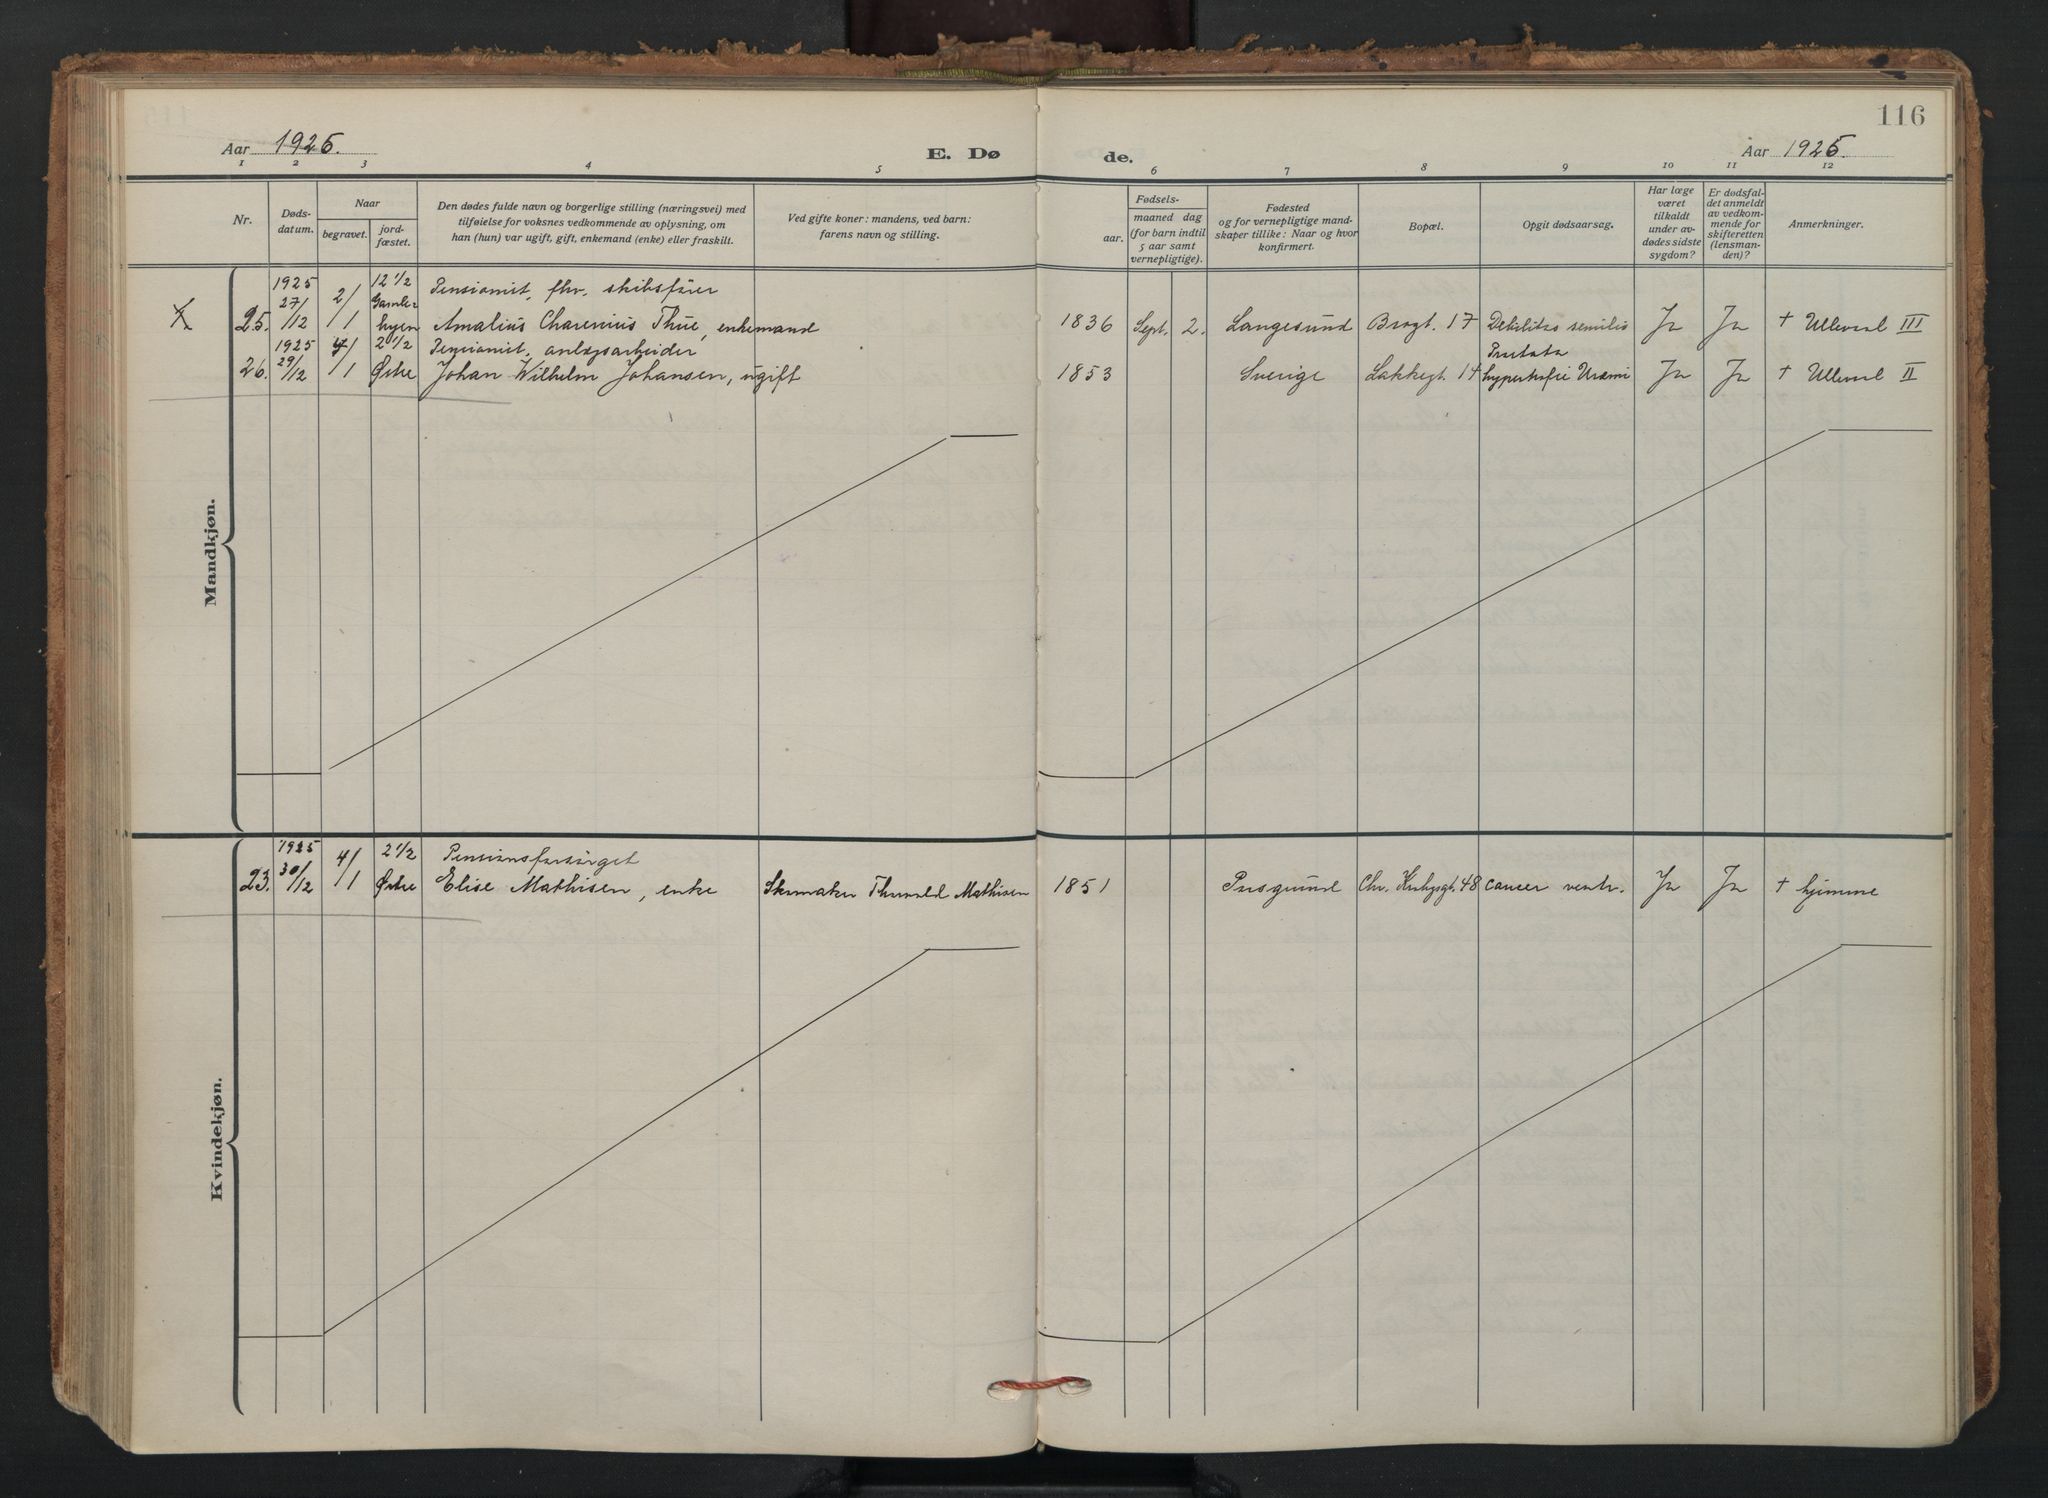 116
Aar 1925.
E. Dø
de.
Aar 1925.
1 2 3 4 5 6 7 8 9 10 11 12
Nr.
Døds-
datum.
Naar
begravet.
jord-
fæstet.
Den dødes fulde navn og borgerlige stilling (næringsvei) med
tilføielse for voksnes vedkommende av oplysning, om
han (hun) var ugift, gift, enkemand (enke) eller fraskilt.
Ved gifte koner: mandens, ved barn:
farens navn og stilling.
Fødsels-
aar.
maaned dag
(for barn indtil
5 aar samt
vernepligtige).
Fødested
og for vernepligtige mand-
skaper tillike: Naar og hvor
konfirmert.
Bopæl.
Opgit dødsaarsag.
Har læge
været
tilkaldt
under av-
dødes sidste
sygdom?
Er dødsfal-
det anmeldt
av vedkom-
mende for
skifteretten
(lensman-
den)?
Anmerkninger.
Mandkjøn.
1925 12 1/2 Pensionist, fhv. skibsfører
25. 27/12 2/1 Gamlebyen Amalius Charenius Thue, enkemand 1836 Sept. 2. Langesund Brogt. 17 Debilitas senilis Ja Ja + Ulleval III
1925 2 1/2 Pensionist, anlegsarbeider Prostata
26. 29/12 4/1 Østre Johan Wilhelm Johansen, ugift 1853 Sverige Lakkegt. 14 hypertrofie Uræmi Ja Ja + Ulleval II
Kvindekjøn.
1925 2 1/2 Pensionsforsørget
23. 30/12 4/1 Østre Elise Mathisen, enke Skomaker Thorvald Mathisen 1851 Porsgrund Chr. Krohgsgt. 48 cancer ventr. Ja Ja + hjemme